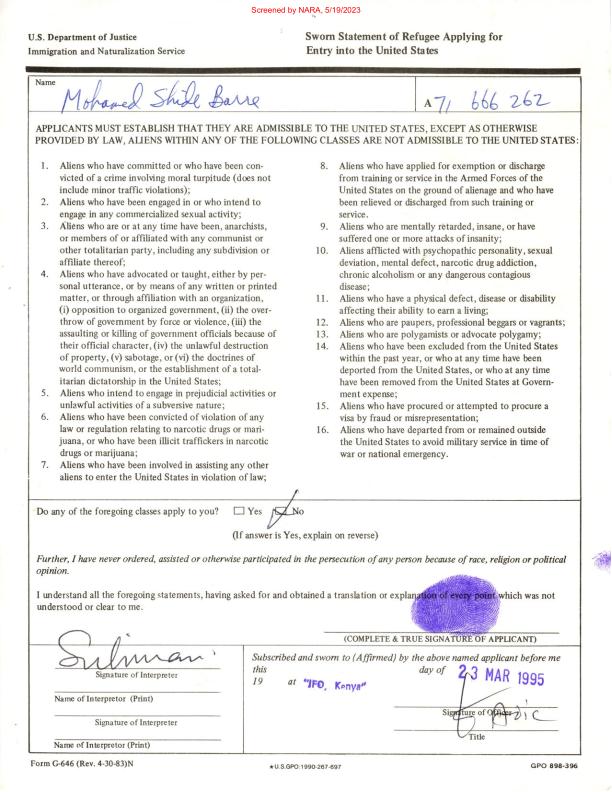 Screened by NARA, 5/19/2023
U.S. Department of Justice
Immigration and Naturalization Service
Sworn Statement of Refugee Applying for
Entry into the United States
Name
Mohamed Shide Barre
A 71 666 262
APPLICANTS MUST ESTABLISH THAT THEY ARE ADMISSIBLE TO THE UNITED STATES, EXCEPT AS OTHERWISE
PROVIDED BY LAW, ALIENS WITHIN ANY OF THE FOLLOWING CLASSES ARE NOT ADMISSIBLE TO THE UNITED STATES:
1. Aliens who have committed or who have been con-
victed of a crime involving moral turpitude (does not
include minor traffic violations);
2. Aliens who have been engaged in or who intend to
engage in any commercialized sexual activity;
3. Aliens who are or at any time have been, anarchists,
or members of or affiliated with any communist or
other totalitarian party, including any subdivision or
affiliate thereof;
4. Aliens who have advocated or taught, either by per-
sonal utterance, or by means of any written or printed
matter, or through affiliation with an organization,
(i) opposition to organized government, (ii) the over-
throw of government by force or violence, (iii) the
assaulting or killing of government officials because of
their official character, (iv) the unlawful destruction
of property, (v) sabotage, or (vi) the doctrines of
world communism, or the establishment of a total-
itarian dictatorship in the United States;
5. Aliens who intend to engage in prejudicial activities or
unlawful activities of a subversive nature;
6. Aliens who have been convicted of violation of any
law or regulation relating to narcotic drugs or mari-
juana, or who have been illicit traffickers in narcotic
drugs or marijuana;
7. Aliens who have been involved in assisting any other
aliens to enter the United States in violation of law;
8. Aliens who have applied for exemption or discharge
from training or service in the Armed Forces of the
United States on the ground of alienage and who have
been relieved or discharged from such training or
service.
9. Aliens who are mentally retarded, insane, or have
suffered one or more attacks of insanity;
10. Aliens afflicted with psychopathic personality, sexual
deviation, mental defect, narcotic drug addiction,
chronic alcoholism or any dangerous contagious
disease;
11. Aliens who have a physical defect, disease or disability
affecting their ability to earn a living;
12. Aliens who are paupers, professional beggars or vagrants;
13. Aliens who are polygamists or advocate polygamy;
14. Aliens who have been excluded from the United States
within the past year, or who at any time have been
deported from the United States, or who at any time
have been removed from the United States at Govern-
ment expense;
15. Aliens who have procured or attempted to procure a
visa by fraud or misrepresentation;
16. Aliens who have departed from or remained outside
the United States to avoid military service in time of
war or national emergency.
Do any of the foregoing classes apply to you? Yes No
(If answer is Yes, explain on reverse)
Further, I have never ordered, assisted or otherwise participated in the persecution of any person because of race, religion or political
opinion.
I understand all the foregoing statements, having asked for and obtained a translation or explanation of every point which was not
understood or clear to me.
(COMPLETE & TRUE SIGNATURE OF APPLICANT)
Signature of Interpreter
Name of Interpreter (Print)
Signature of Interpreter
Name of Interpreter (Print)
Subscribed and sworn to (Affirmed) by the above named applicant before me
this day of 23 MAR 1995
19 at "IFO, Kenya"
Signature of Officer
Title
Form G-646 (Rev. 4-30-83)N
★U.S.GPO:1990-267-697
GPO 898-396